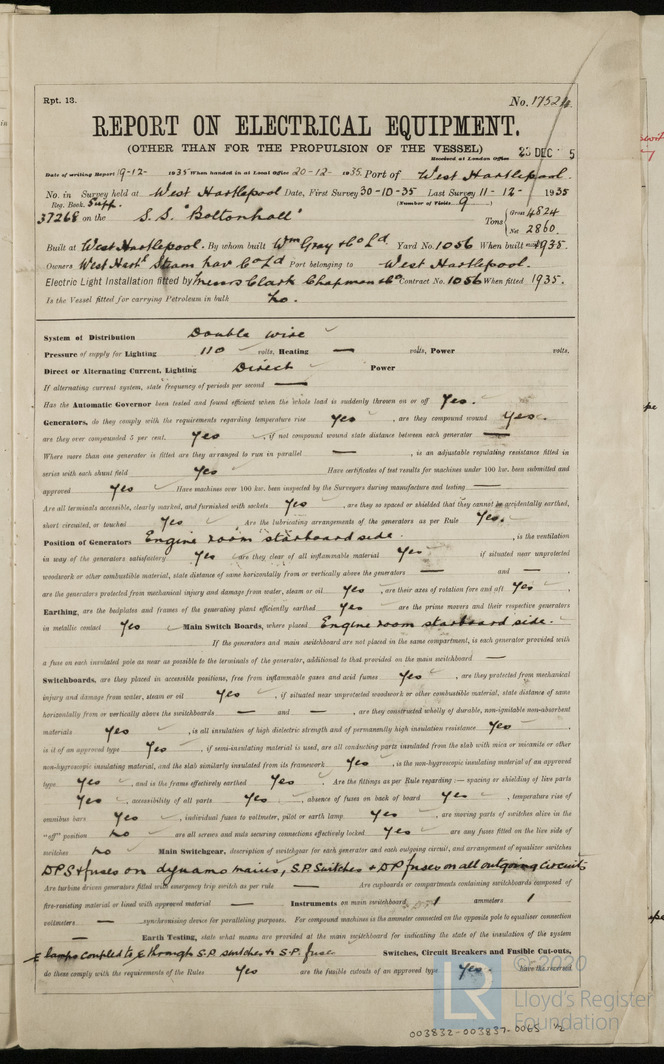 Rpt. 13.
No. 17524
REPORT ON ELECTRICAL EQUIPMENT.
(OTHER THAN FOR THE PROPULSION OF THE VESSEL)
Received at London Office 23 DEC 5
Date of writing Report 19-12- 1935 When handed in at Local Office 20-12- 1935. Port of West Hartlepool.
No. in Survey held at West Hartlepool Date, First Survey 30-10-35 Last Survey 11-12- 1935
Reg. Book. Supp. (Number of Visits 9)
37268 on the S.S. "Boltonhall" Tons Gross 4824
Net 2860.
Built at West Hartlepool. By whom built Wm Gray & Co Ld Yard No. 1056 When built 1935.
Owners West Hartl Steam Nav Co Ld Port belonging to West Hartlepool.
Electric Light Installation fitted by Messrs Clark Chapman & Co Contract No. 1056 When fitted 1935.
Is the Vessel fitted for carrying Petroleum in bulk No.
System of Distribution Double wire
Pressure of supply for Lighting 110 volts, Heating — volts, Power volts.
Direct or Alternating Current, Lighting Direct Power
If alternating current system, state frequency of periods per second —
Has the Automatic Governor been tested and found efficient when the whole load is suddenly thrown on or off Yes.
Generators, do they comply with the requirements regarding temperature rise Yes, are they compound wound Yes.
are they over compounded 5 per cent. Yes, if not compound wound state distance between each generator —
Where more than one generator is fitted are they arranged to run in parallel —, is an adjustable regulating resistance fitted in
series with each shunt field Yes Have certificates of test results for machines under 100 kw. been submitted and
approved Yes Have machines over 100 kw. been inspected by the Surveyors during manufacture and testing —
Are all terminals accessible, clearly marked, and furnished with sockets Yes, are they so spaced or shielded that they cannot be accidentally earthed,
short circuited, or touched Yes Are the lubricating arrangements of the generators as per Rule Yes.
Position of Generators Engine room starboard side., is the ventilation
in way of the generators satisfactory Yes are they clear of all inflammable material Yes if situated near unprotected
woodwork or other combustible material, state distance of same horizontally from or vertically above the generators — and —,
are the generators protected from mechanical injury and damage from water, steam or oil Yes, are their axes of rotation fore and aft Yes.
Earthing, are the bedplates and frames of the generating plant efficiently earthed Yes are the prime movers and their respective generators
in metallic contact Yes Main Switch Boards, where placed Engine room starboard side.
If the generators and main switchboard are not placed in the same compartment, is each generator provided with
a fuse on each insulated pole as near as possible to the terminals of the generator, additional to that provided on the main switchboard —
Switchboards, are they placed in accessible positions, free from inflammable gases and acid fumes Yes, are they protected from mechanical
injury and damage from water, steam or oil Yes, if situated near unprotected woodwork or other combustible material, state distance of same
horizontally from or vertically above the switchboards — and —, are they constructed wholly of durable, non-ignitable non-absorbent
materials Yes, is all insulation of high dielectric strength and of permanently high insulation resistance Yes
is it of an approved type Yes, if semi-insulating material is used, are all conducting parts insulated from the slab with mica or micanite or other
non-hygroscopic insulating material, and the slab similarly insulated from its framework Yes, is the non-hygroscopic insulating material of an approved
type Yes, and is the frame effectively earthed Yes. Are the fittings as per Rule regarding:— spacing or shielding of live parts
Yes, accessibility of all parts Yes, absence of fuses on back of board Yes, temperature rise of
omnibus bars Yes, individual fuses to voltmeter, pilot or earth lamp Yes, are moving parts of switches alive in the
"off" position No are all screws and nuts securing connections effectively locked Yes are any fuses fitted on the live side of
switches No Main Switchgear, description of switchgear for each generator and each outgoing circuit, and arrangement of equalizer switches
D.P.S & fuses on dynamo mains, S.P. Switches + D.P fuses on all outgoing circuits
Are turbine driven generators fitted with emergency trip switch as per rule — Are cupboards or compartments containing switchboards composed of
fire-resisting material or lined with approved material — Instruments on main switchboard 1 ammeters 1
voltmeters — synchronising device for paralleling purposes. For compound machines is the ammeter connected on the opposite pole to equalizer connection
— Earth Testing, state what means are provided at the main switchboard for indicating the state of the insulation of the system
E lamps coupled to E through S.P. switches & S.P. fuse Switches, Circuit Breakers and Fusible Cut-outs,
do these comply with the requirements of the Rules Yes are the fusible cutouts of an approved type Yes. have the reversed
© 2020
LR
Lloyd's Register
Foundation
003832-003837-0065 ½